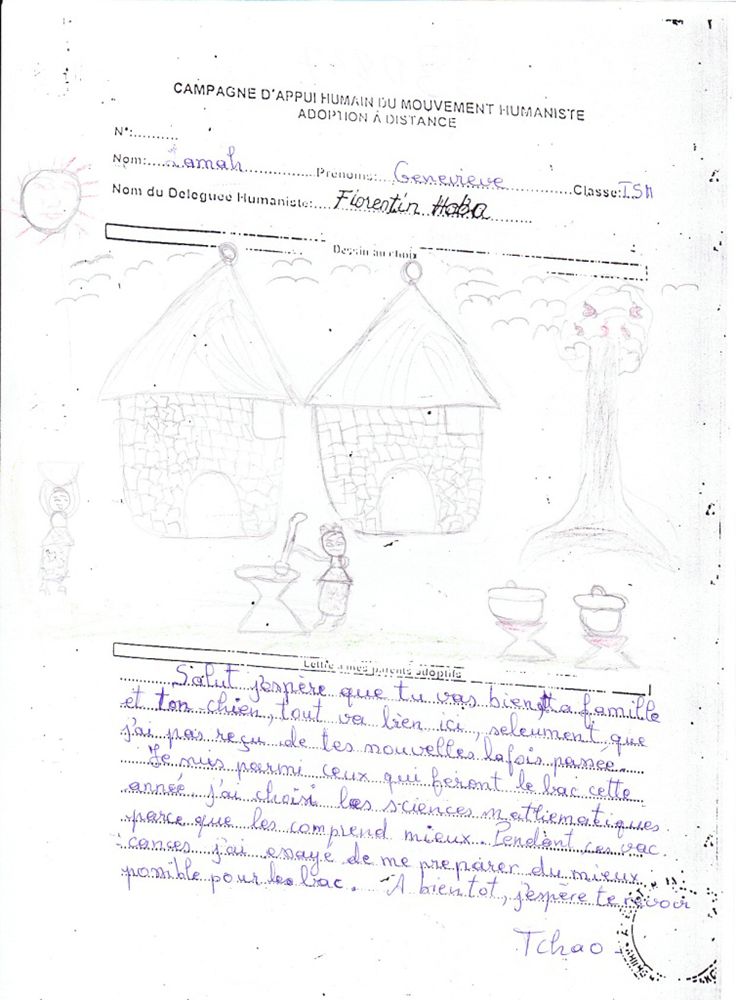 CAMPAGNE D'APPUI HUMAIN DU MOUVEMENT HUMANISTE
ADOPTION À DISTANCE
N°:..........
Nom:....Lamah.................Prenoms:....Genevieve................Classe:ISM
Nom du Deleguee Humaniste:....Florentin Haba..........
Dessin au choix
Lettre a mes parents adoptifs
Salut j'espère que tu vas bien, ta famille
et ton chien, tout va bien ici, seleument que
j'ai pas reçu de tes nouvelles la fois passee.
Je suis parmi ceux qui feront le bac cette
année, j'ai choisi les sciences mathematiques
parce que les comprend mieux. Pendant ces vac
cances j'ai essayé de me preparer du mieux
possible pour les bac. A bientot, j'espère te revoir
Tchao